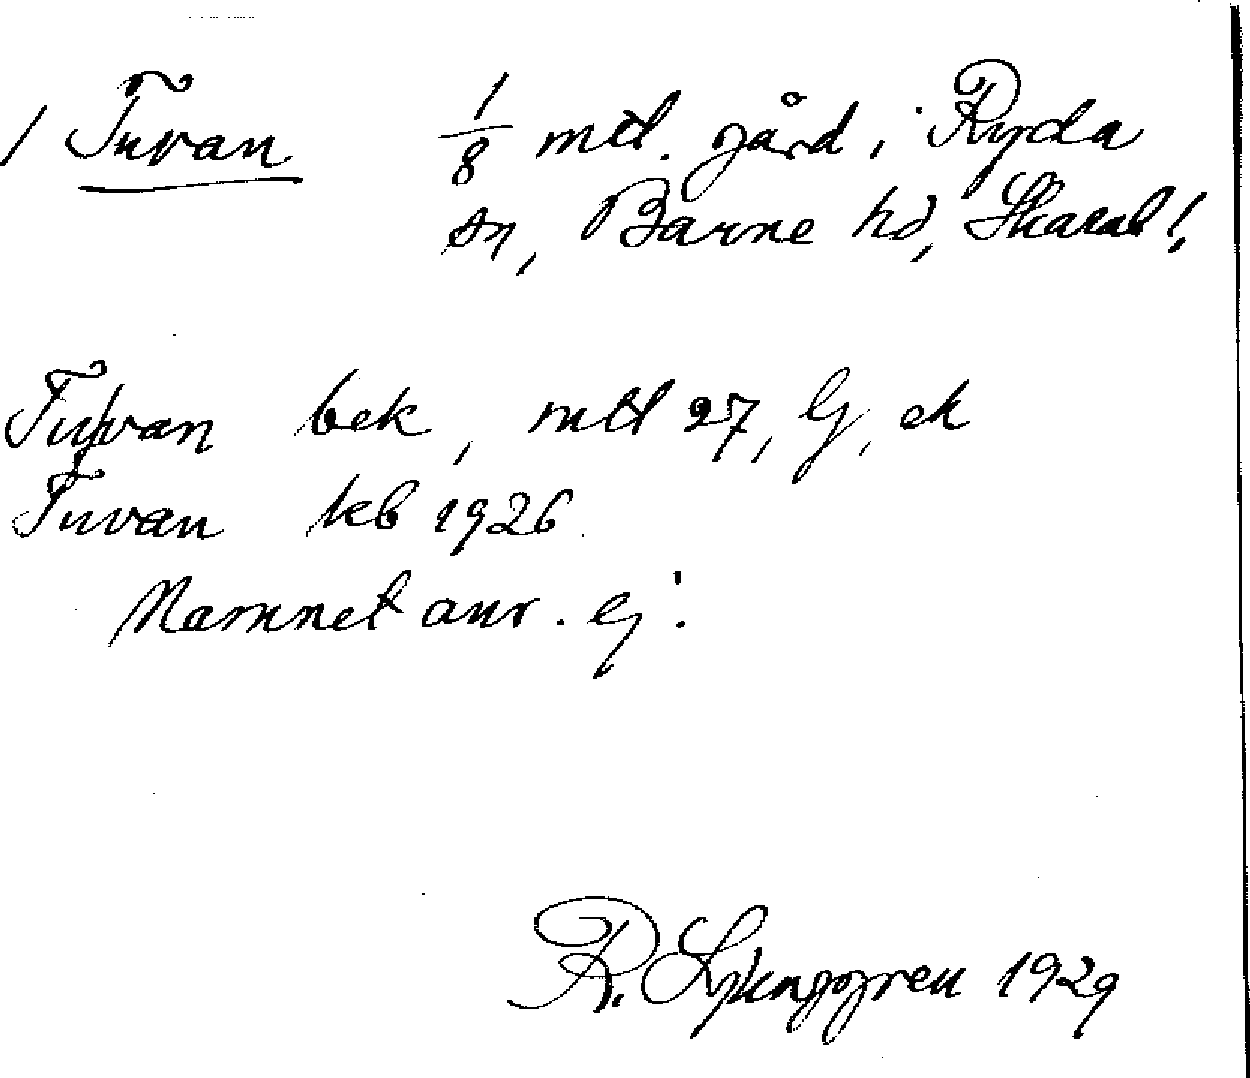 / Tuvan 1/8 mtl. gård i Ryda
sn, Barne hd, Skarab!,
Tuvan bek, mtl 27, G, ek
Tuvan kb 1926.
Namnet anv. ej.
R. Ljunggren 1929